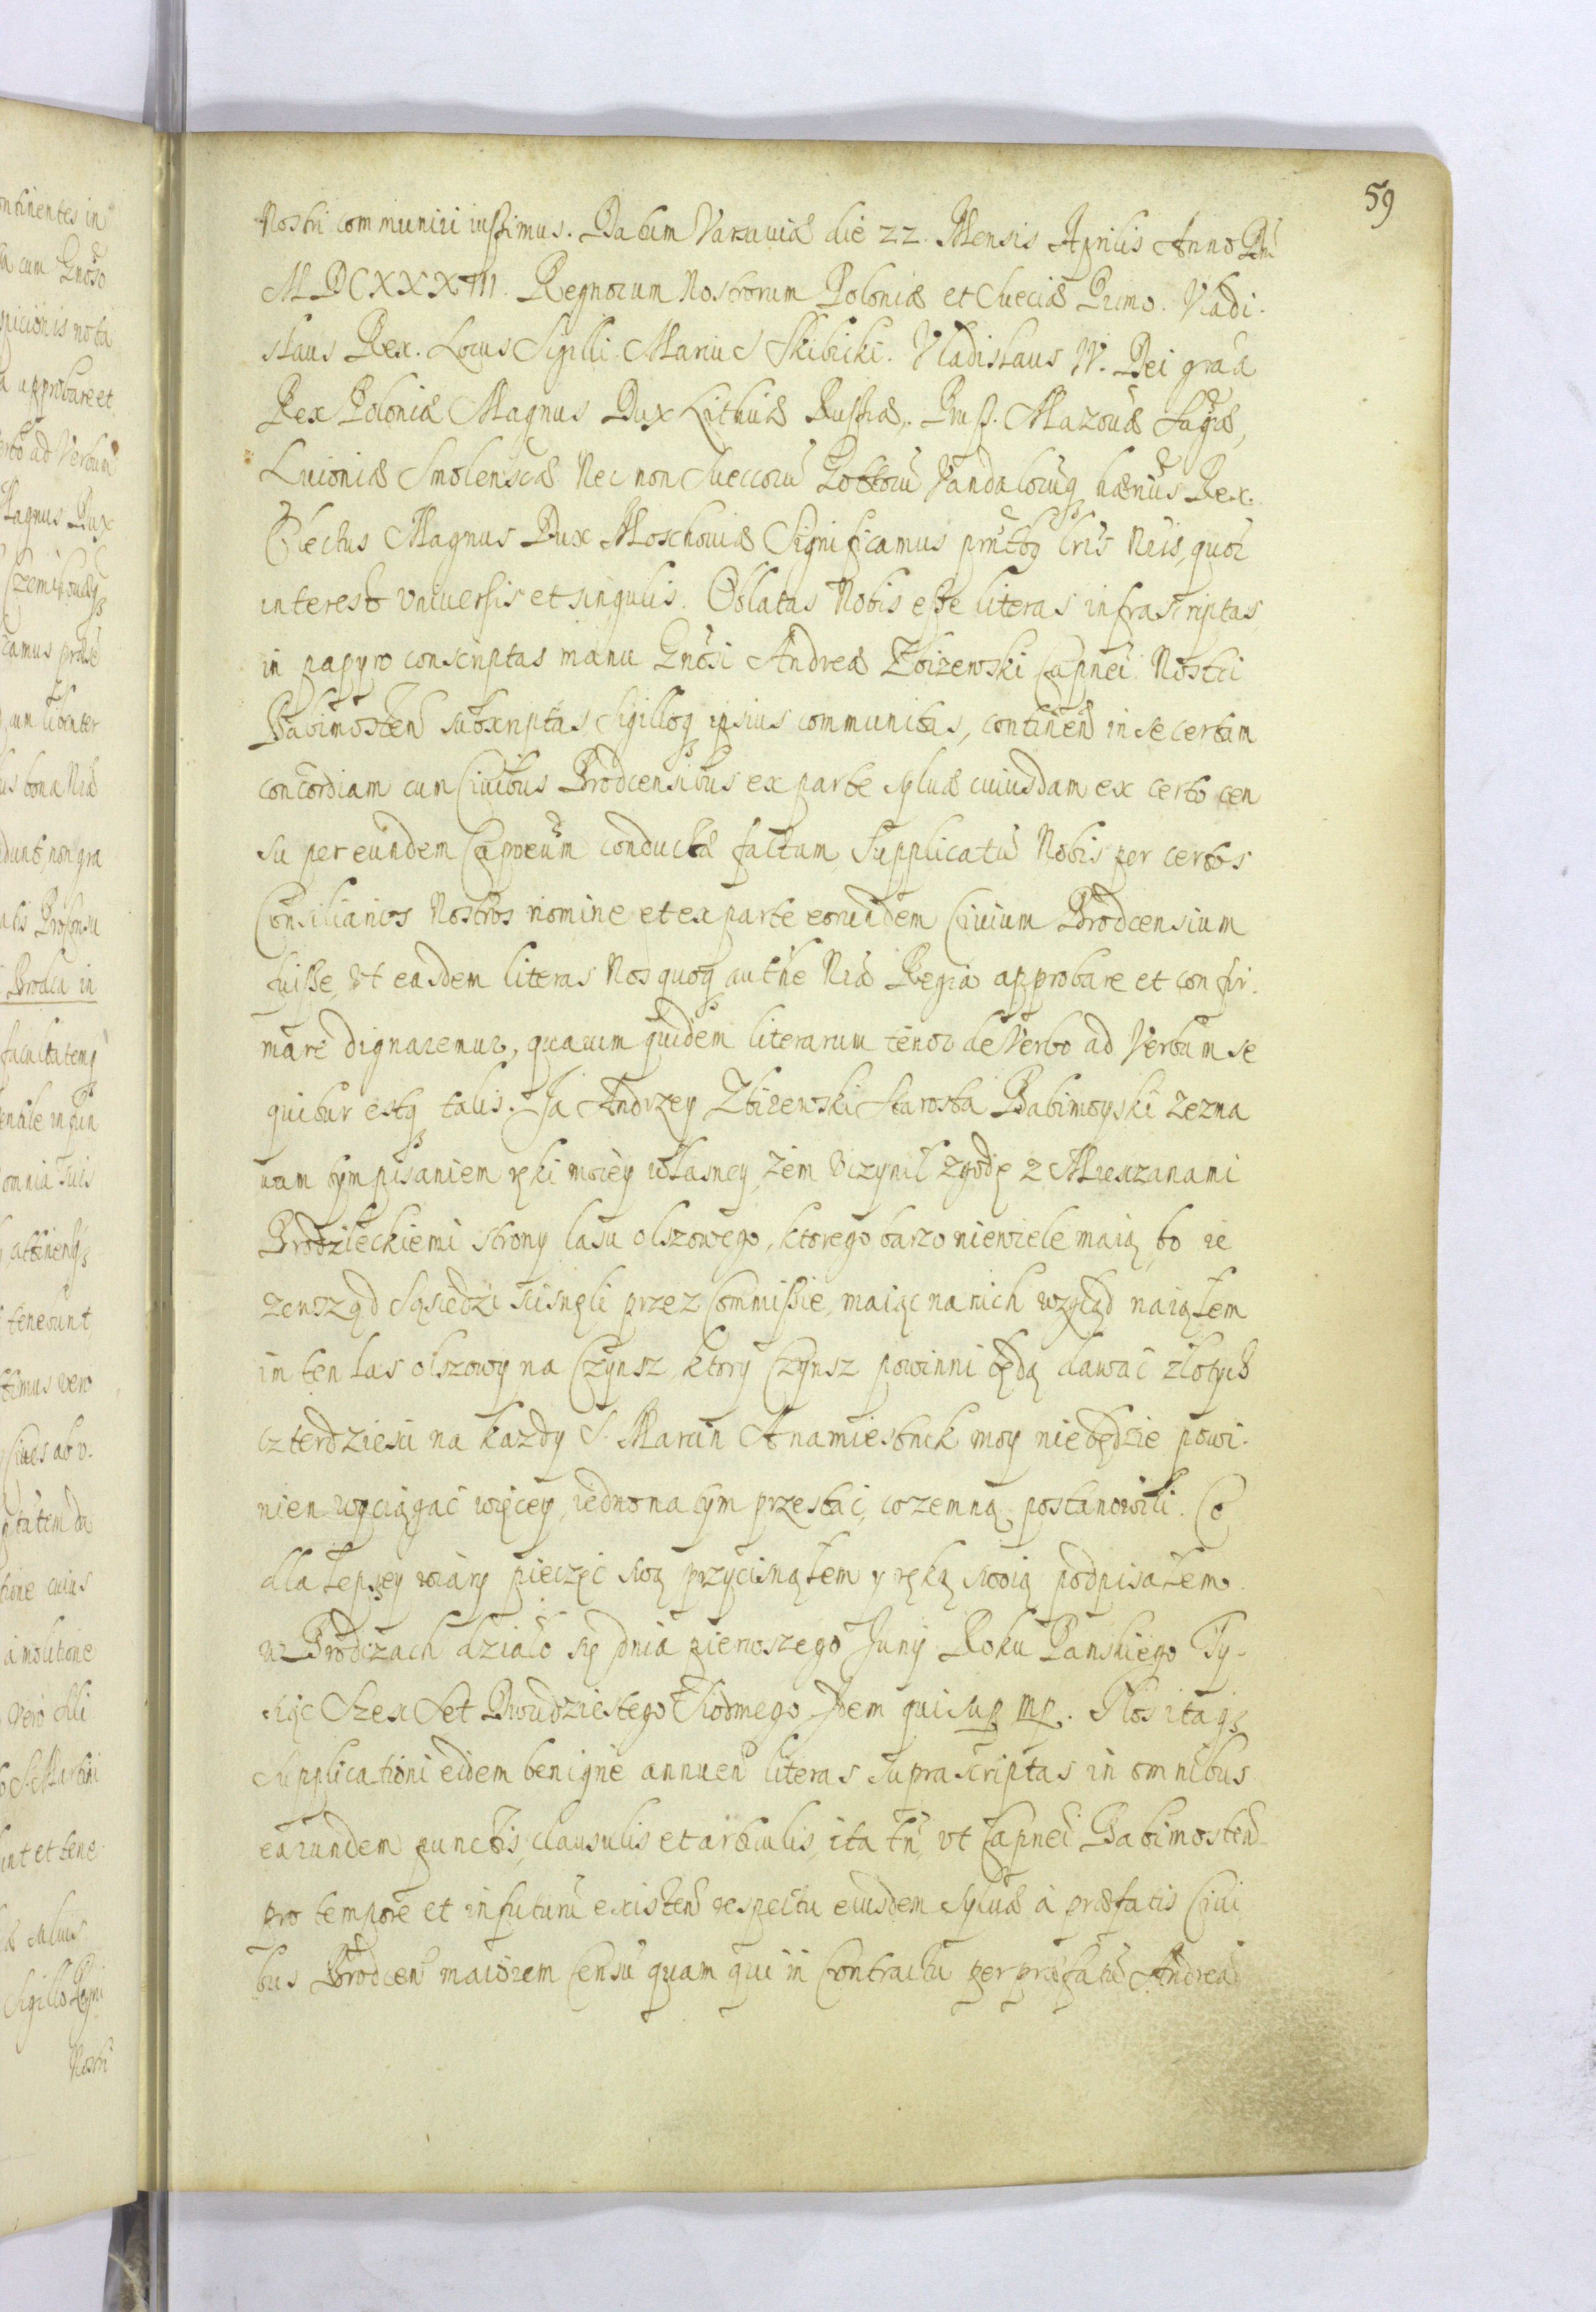 59
Nostri communiri iussimus. Datum Varsaviæ die 22. Mensis Aprilis Anno Dni
MDCXXXIII. Regnorum Nostrorum Poloniæ et Sueciæ Primo. Vladi-
slaus Rex. Locus Sigilli. Skibicki. Vladislaus IV. Dei gratia
Rex Poloniæ Magnus Dux Lithuæ Russiæ, Pruss. Mazouæ Sagæ,
Liuoniæ Smolenscæ Nec non Sueccorū Gottorū Vandalorūq hærius Rex.
Electus Magnus Dux Moschouiæ Significamus pntibq lris Nris, quor
interest vniuersis et singulis. Oblatas Nobis esse literas infrascriptas
in papyro conscriptas manu Gnosi Andreæ Zbizewski Capnei Nostri
Babimosten subscriptas Sigilloq ipsius communitas, continen in se certam
concordiam cum Ciuibus Brodcensibus ex parte sylvæ cuiusdam ex certo cen
su per eundem Capneum conductæ factam, Supplicatū Nobis per certos
Consiliarios Nostros nomine et ex parte eorundem Ciuium Brodcensium
fuisse, Vt easdem literas Nos quoq authte Nra Regia approbare et confir-
mare dignaremur, quarum quidem literarum tenor de Verbo ad Verbum se
quitur estq talis. Ja Andrzey Zbizewski Starosta Babimoyski zezna
wam tym pisaniem ręki moiey własney, żem Vczynił zgodę z Miesczanami
Brodzileckiemi strony lasu olszowego, ktorego barzo niewiele maią, bo ie
zewsząd Sąsiedzi scisnęli przez Commissie, maiąc na nich wzgląd naiąłem
im ten las olszowy na Czynsz, ktory Czynsz powinni będą dawać złotych
czterdziesci na każdy S. Marcin A namiestnik moy niebędzie powi-
nien wyciągać więcey, iedno na tym przestać, co zemną postanowili. Co
dla lepszey wiary pieczęć swą przycisnąłem y ręką swoią podpisałem.
w Brodczach działo się dnia pierwszego Juny Roku Panskiego Ty-
siąc Szesc Set Dwudziestego Siodmego Idem qui sup mp. Nos itaq
supplicationi eidem benigne annuen literas suprascriptas in omnibus
earundem punctis, clausulis et articulis, ita tn, vt Capnei Babimosten
pro tempore et in futurū existen respectu eiusdem sylvæ à præfatis Ciui
bus Brodcen maiorem Censū quam qui in Contractu per præfatū Andreā